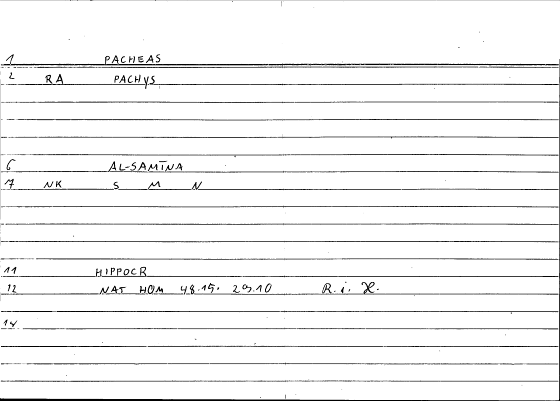 1 PACHEAS
2 RA PACHYS
6 AL-SAMĪNA
7 NK S M N
11 HIPPOCR
12 NAT HOM 48.15. 29.10 R. i. H.
14